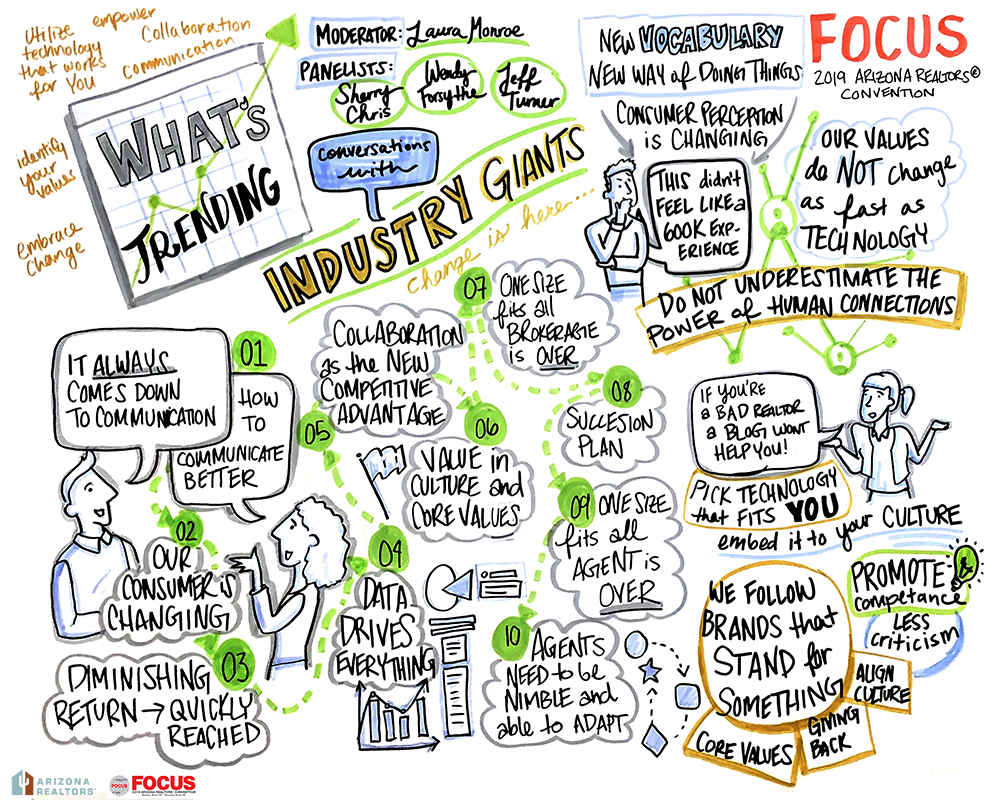 Utilize
technology
that works
for You
empower
Collaboration
Communication
identify
your
values
embrace
change
WHAT'S
TRENDING
MODERATOR: Laura Monroe
PANELISTS:
Sherry
Chris
Wendy
Forsythe
Jeff
Turner
Conversations
with
INDUSTRY GIANTS
change is here...
NEW VOCABULARY
NEW WAY of DOING THINGS
CONSUMER PERCEPTION
is CHANGING
FOCUS
2019 ARIZONA REALTORS®
CONVENTION
THIS didn't
FEEL LIKE a
600K EXP-
ERIENCE
OUR VALUES
do NOT change
as fast as
TECHNOLOGY
DO NOT UNDERESTIMATE THE
POWER of HUMAN CONNECTIONS
01
IT ALWAYS
COMES DOWN
TO COMMUNICATION
HOW
TO
COMMUNICATE
BETTER
02
OUR
CONSUMER is
CHANGING
03
DIMINISHING
RETURN → QUICKLY
REACHED
04
DATA
DRIVES
EVERYTHING
05
COLLABORATION
as the NEW
COMPETITIVE
ADVANTAGE
06
VALUE in
CULTURE and
CORE VALUES
07
ONE SIZE
fits all
BROKERAGE
is OVER
08
SUCCESION
PLAN
09
ONE SIZE
fits all
AGENT is
OVER
10
AGENTS
NEED to be
NIMBLE and
able to ADAPT
IF YOU'RE
a BAD REALTOR
a BLOG WONT
HELP YOU!
PICK TECHNOLOGY
that FITS YOU
embed it to your CULTURE
WE FOLLOW
BRANDS that
STAND for
SOMETHING
PROMOTE &
competance
LESS
criticism
ALIGN
CULTURE
GIVING
BACK
CORE VALUES
ARIZONA
REALTORS®
FOCUS